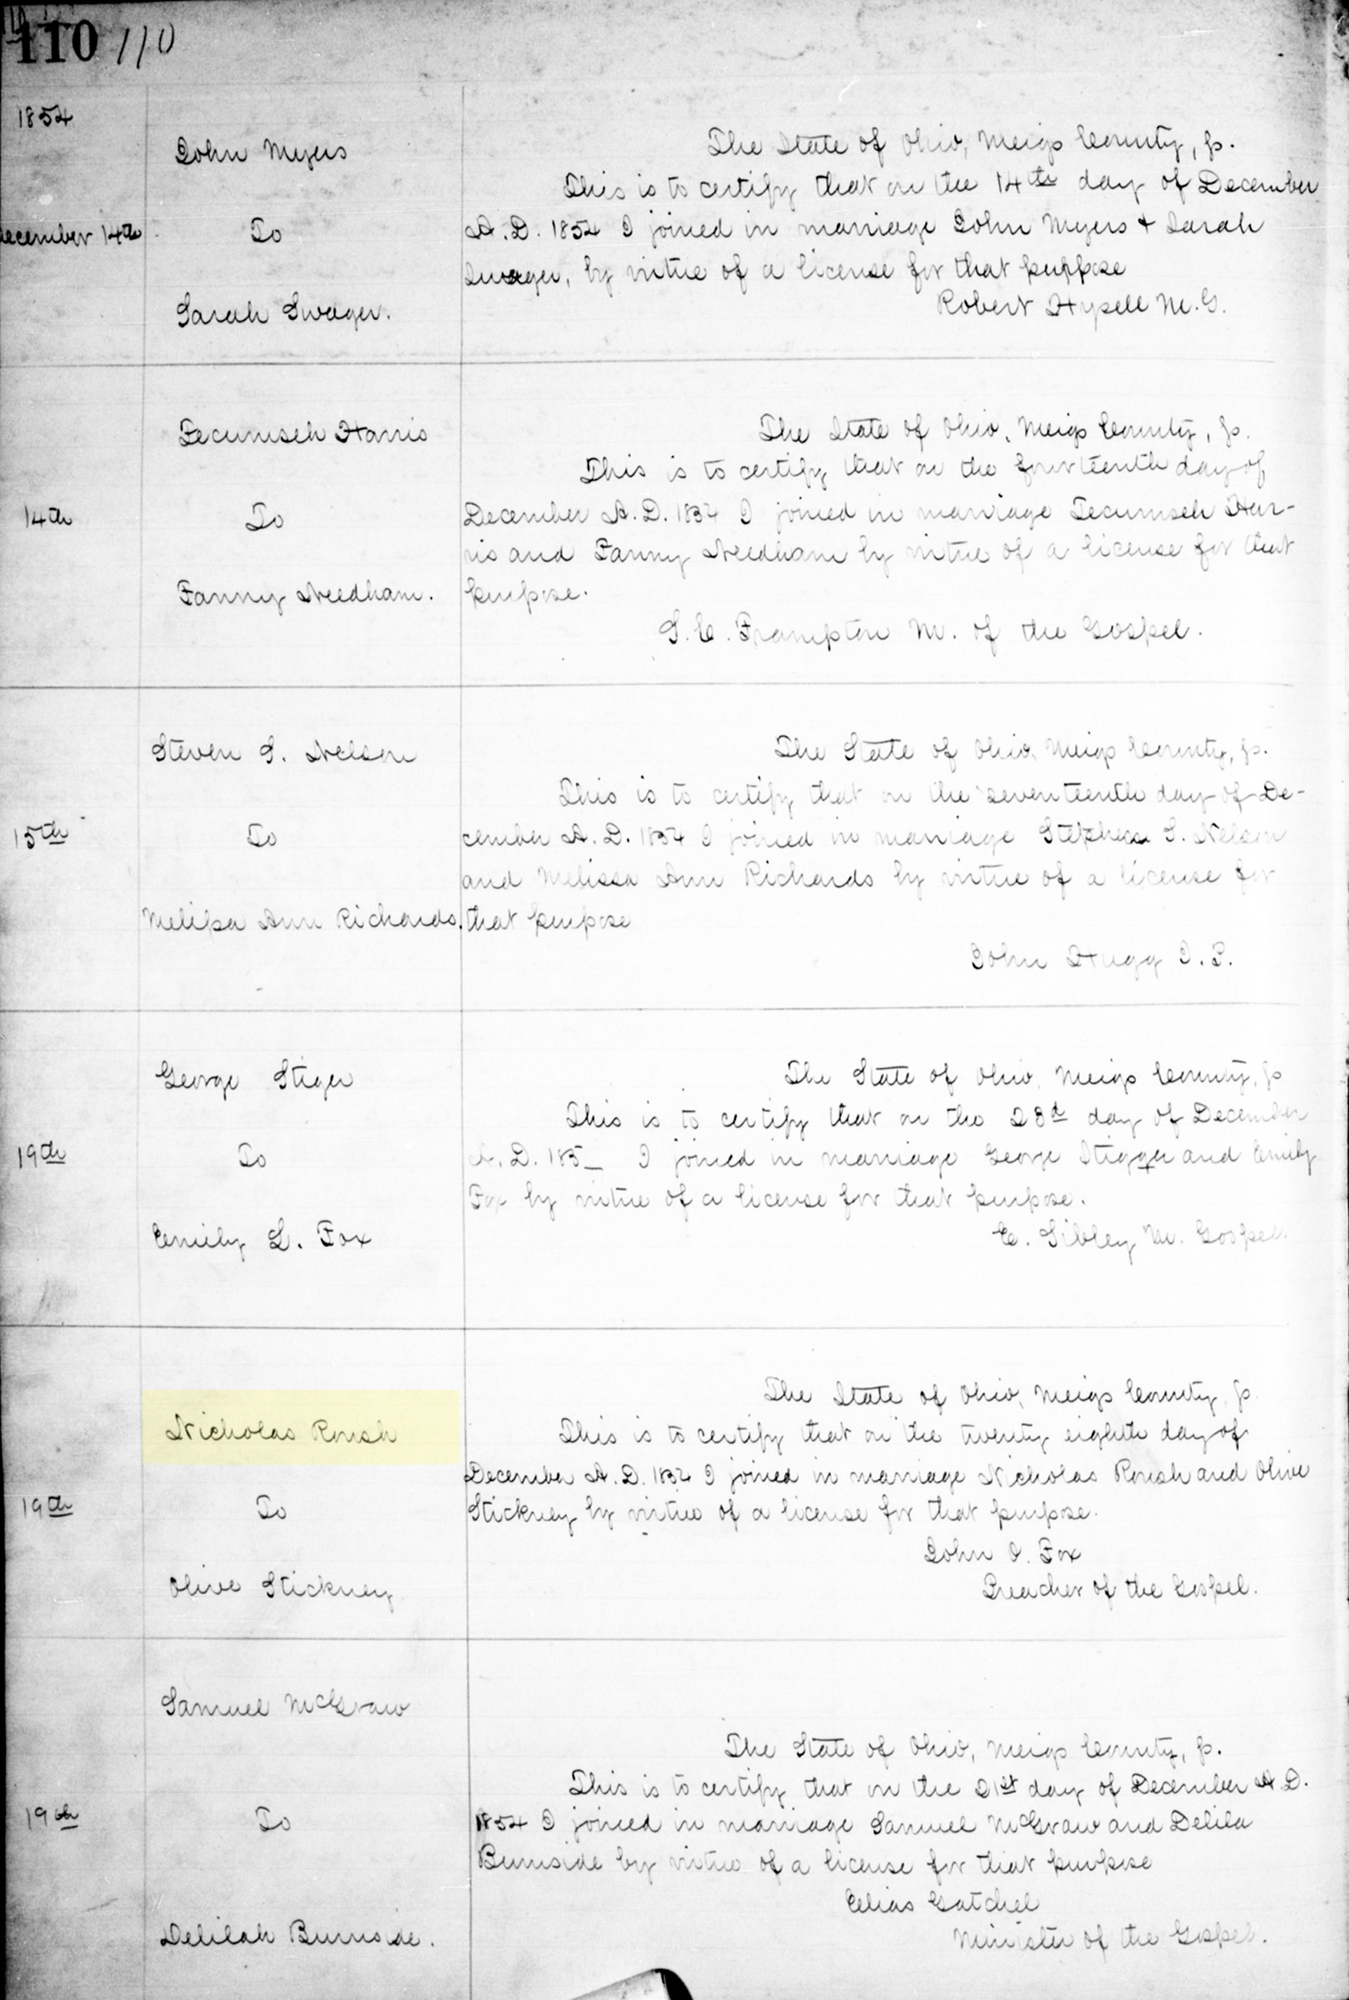 110 110
1854
John Myers
The State of Ohio, Meigs County, ss.
This is to certify that on the 14th day of December
December 14th
To
A.D. 1854 I joined in marriage John Myers & Sarah
Swager, by virtue of a license for that puppose
Sarah Swager.
Robert Hysell M.G.
Tecumseh Harris
The State of Ohio, Meigs County, ss.
This is to certify that on the fourteenth day of
14th
To
December A.D. 1854 I joined in marriage Tecumseh Har-
ris and Fanny Needham by virtue of a license for that
Fanny Needham.
purpose.
S.C. Frampton M. of the Gospel.
Steven S. Nelson
The State of Ohio, Meigs County, ss.
This is to certify that on the seventeenth day of De-
15th
To
cember A.D. 1854 I joined in marriage Stephen S. Nelson
and Melissa Ann Richards by virtue of a license for
Melissa Ann Richards.
that purpose
John Hugg J.P.
George Stiger
The State of Ohio, Meigs County, ss
This is to certify that on the 28d day of December
19th
To
A.D. 185_ I joined in marriage George Stigger and Emily
Fox by virtue of a license for that purpose.
Emily L. Fox
E. Sibley M. Gospel.
The State of Ohio, Meigs County, ss.
Nicholas Roush
This is to certify that on the twenty eighth day of
December A.D. 1854 I joined in marriage Nicholas Roush and Olive
19th
To
Stickney by virtue of a license for that purpose.
John J. Fox
Olive Stickney
Preacher of the Gospel.
Samuel McGraw
The State of Ohio, Meigs County, ss.
This is to certify that on the 21st day of December A.D.
19th
To
1854 I joined in marriage Samuel McGraw and Delila
Burnside by virtue of a license for that purpose
Elias Gatchel
Delilah Burnside.
Minister of the Gospel.